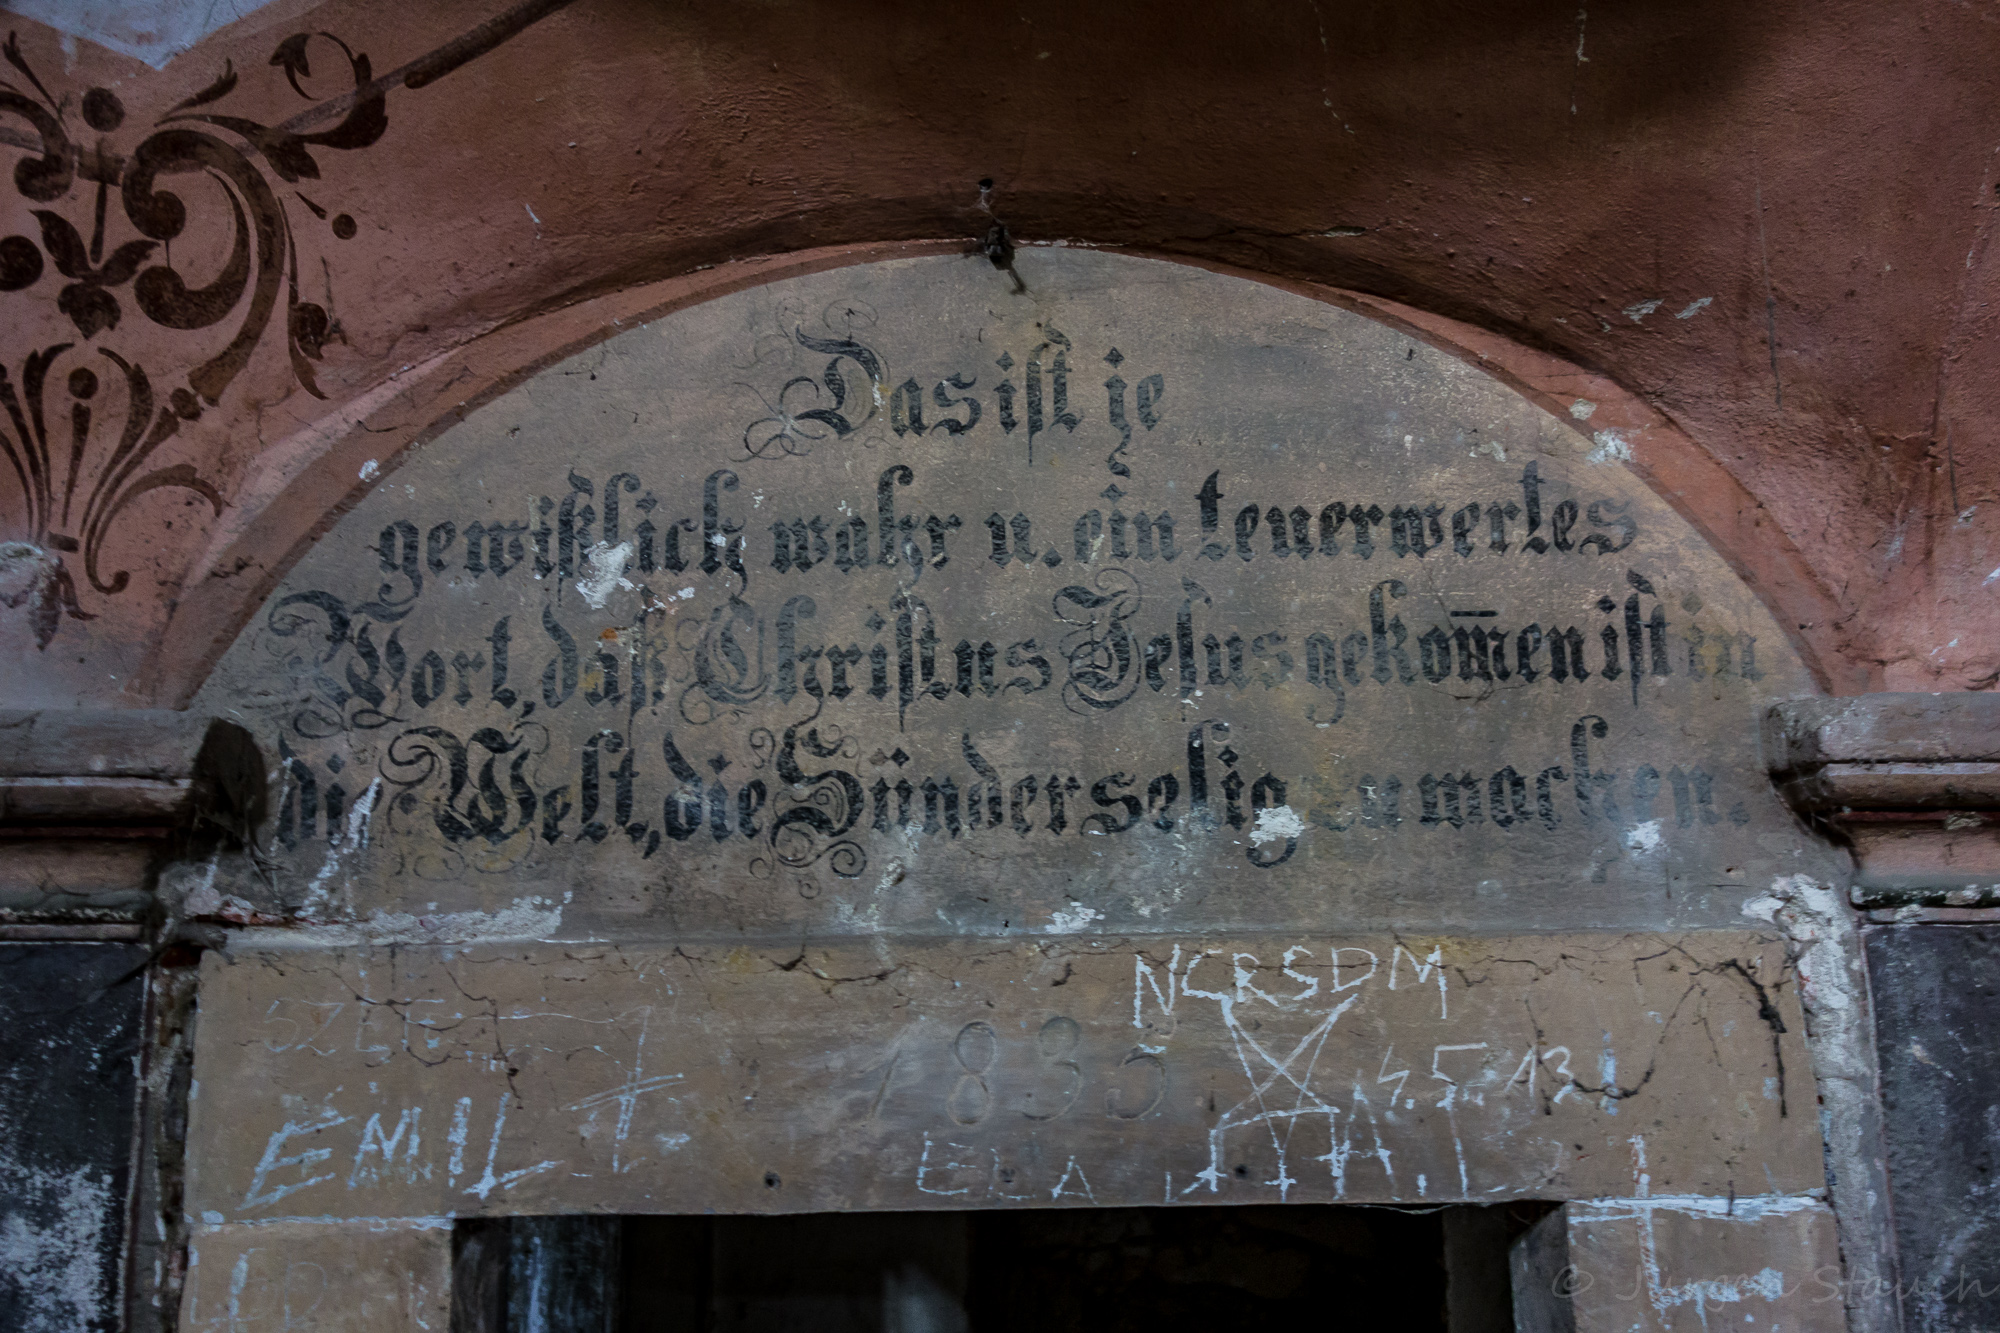 Das ist je
gewißlich wahr u. ein teuerwertes
Wort, daß Christus Jesus gekom̅en ist in
die Welt, die Sünder selig zu machen.
NCRSDM
1835
4.5.13
EMIL
ELA
© Jürgen Stauch